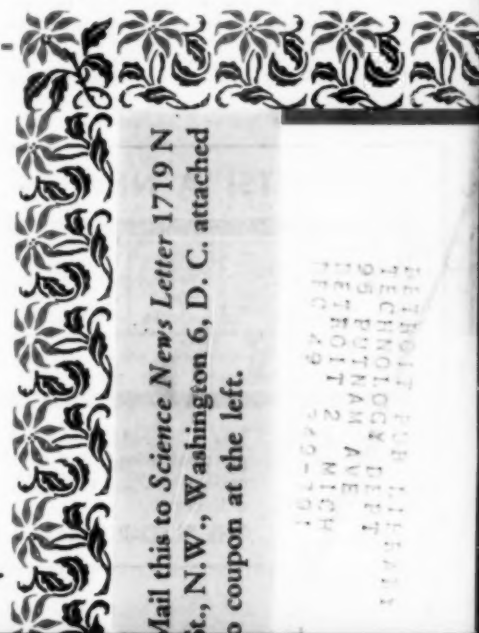 Mail this to Science News Letter 1719 N
St., N.W., Washington 6, D. C. attached
o coupon at the left.
DETROIT PUB LIBRARY
TECHNOLOGY DEPT
95 PUTNAM AVE
DETROIT 2 MICH
DEC 49